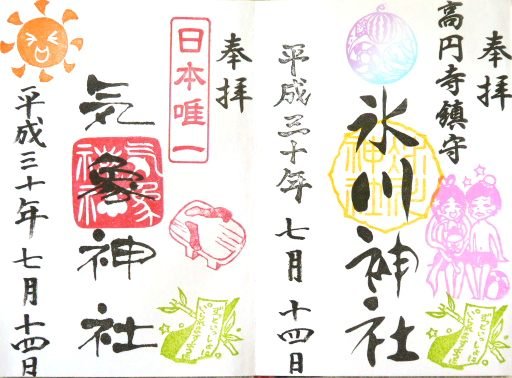 奉拝
高円寺鎮守
氷川神社
平成三十年 七月 十四日
奉拝
日本唯一
気象神社
気象神社
平成三十年 七月 十四日